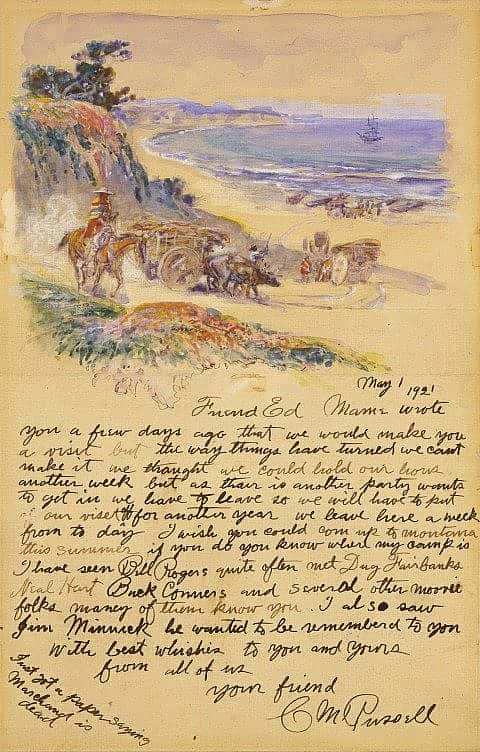 May 1 1921
Friend Ed Mame wrote
you a few days ago that we would make you
a visit but the way things have turned we cant
make it we thaught we could hold our hous
another week but as thair is another party wants
to get in we have to leave so we will have to put
of our viset for another year we leave here a week
from to day I wish you could com up to montana
this summer if you do you know whert my camp is
I have seen Bill Rogers quite often met Dug Fairbanks
Neal Hart Buck Conners and several other moovie
folks maney of them know you. I also saw
Jim Minnick he wanted to be rememberd to you
With best whishes to you and yours
from all of us
your friend
C M Russell
Just got a paper saying
Marchand is
dead